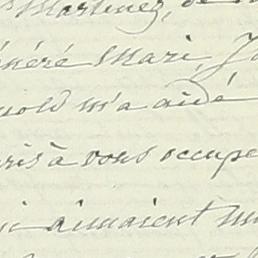 Martinez, de
énéré Mari, J
nold m'a aidé
ris à vous occupe
aimaient